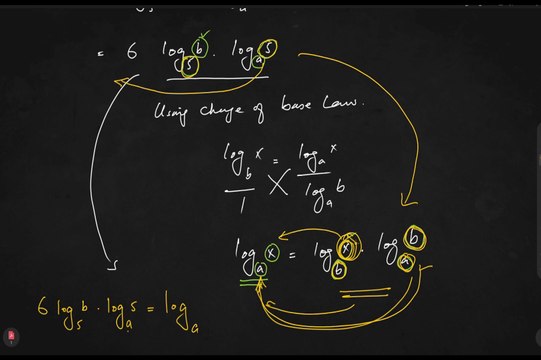 = 6 log₅ b · logₐ 5
Using change of base Law.
log_b x / 1 = logₐ x / logₐ b
logₐ x = log_b x · logₐ b
6 log₅ b · logₐ 5 = logₐ